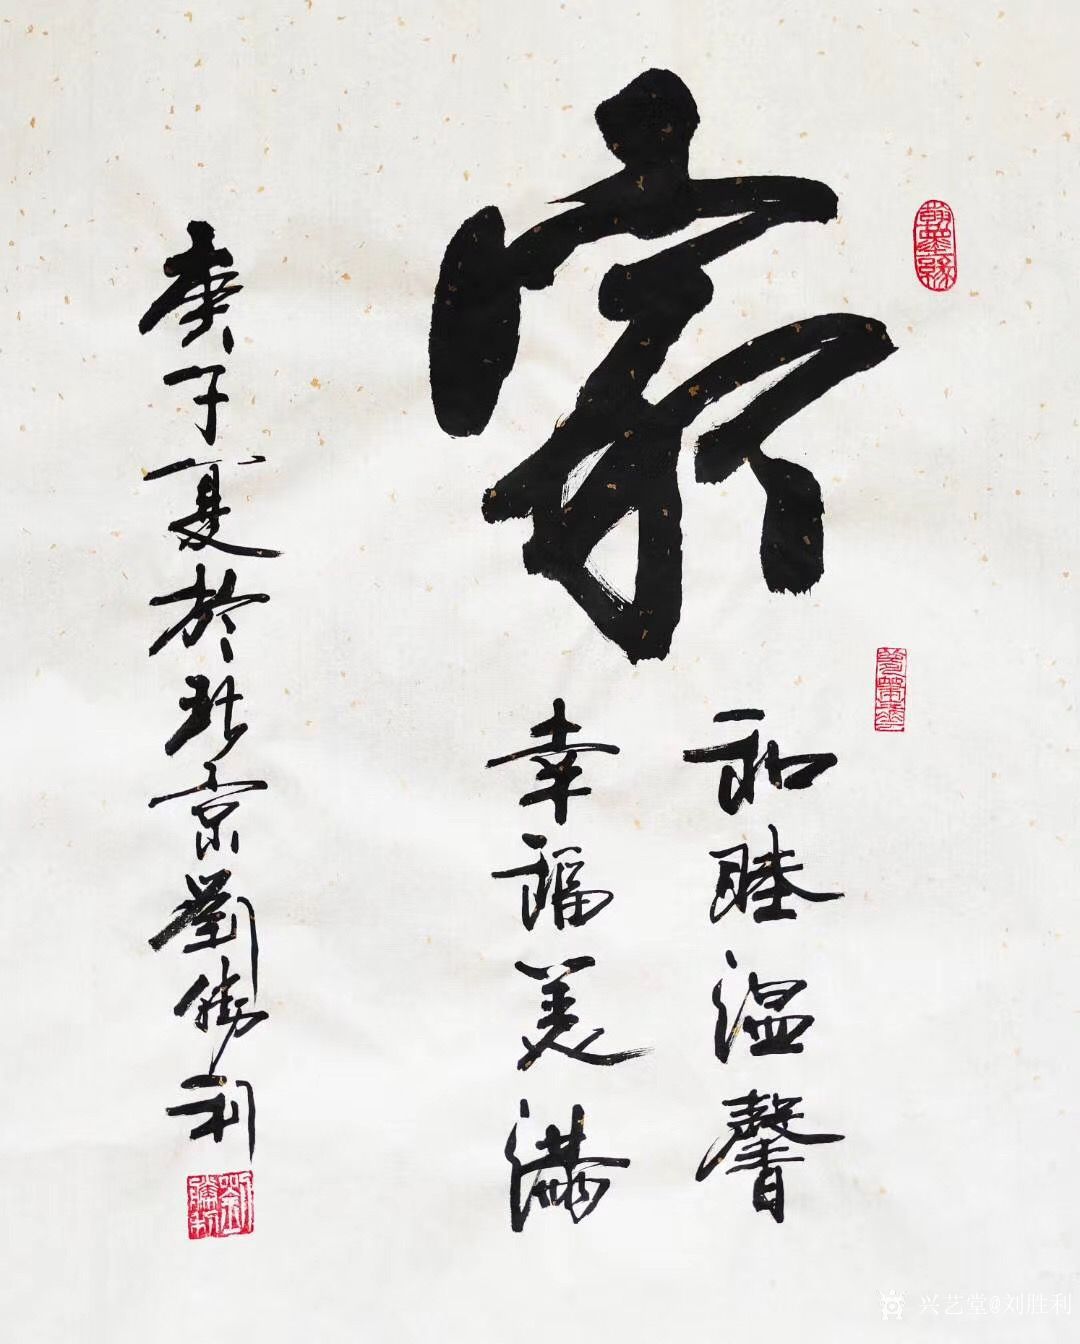 家
和睦温馨
幸福美满
庚子夏於北京劉勝利
翰墨缘
劉勝利
兴艺堂@刘胜利